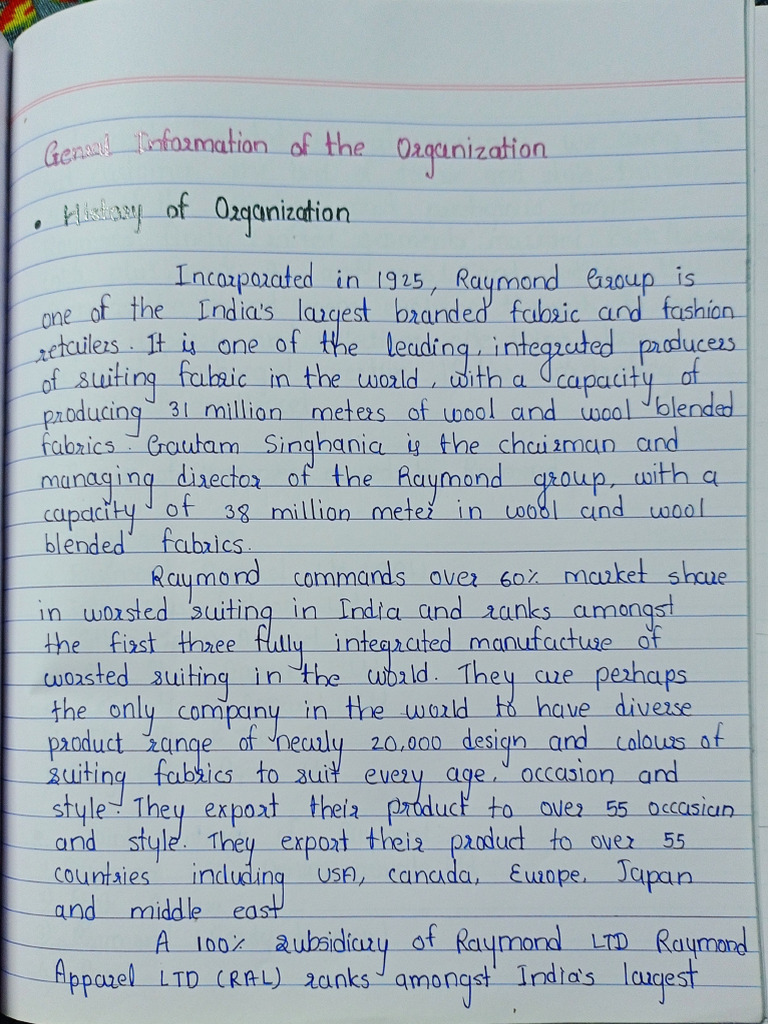 General Information of the Organization
• History of Organization
Incorporated in 1925, Raymond Group is
one of the India's largest branded fabric and fashion
retailers. It is one of the leading, integrated producers
of suiting fabric in the world, with a capacity of
producing 31 million meters of wool and wool blended
fabrics. Gautam Singhania is the chairman and
managing director of the Raymond group, with a
capacity of 38 million meter in wool and wool
blended fabrics.
Raymond commands over 60% market share
in worsted suiting in India and ranks amongst
the first three fully integrated manufacture of
worsted suiting in the world. They are perhaps
the only company in the world to have diverse
product range of nearly 20,000 design and colours of
suiting fabrics to suit every age, occasion and
style. They export their product to over 55 occasian
and style. They export their product to over 55
countries including USA, Canada, Europe, Japan
and middle east
A 100% subsidiary of Raymond LTD Raymond
Apparel LTD (RAL) ranks amongst India's largest